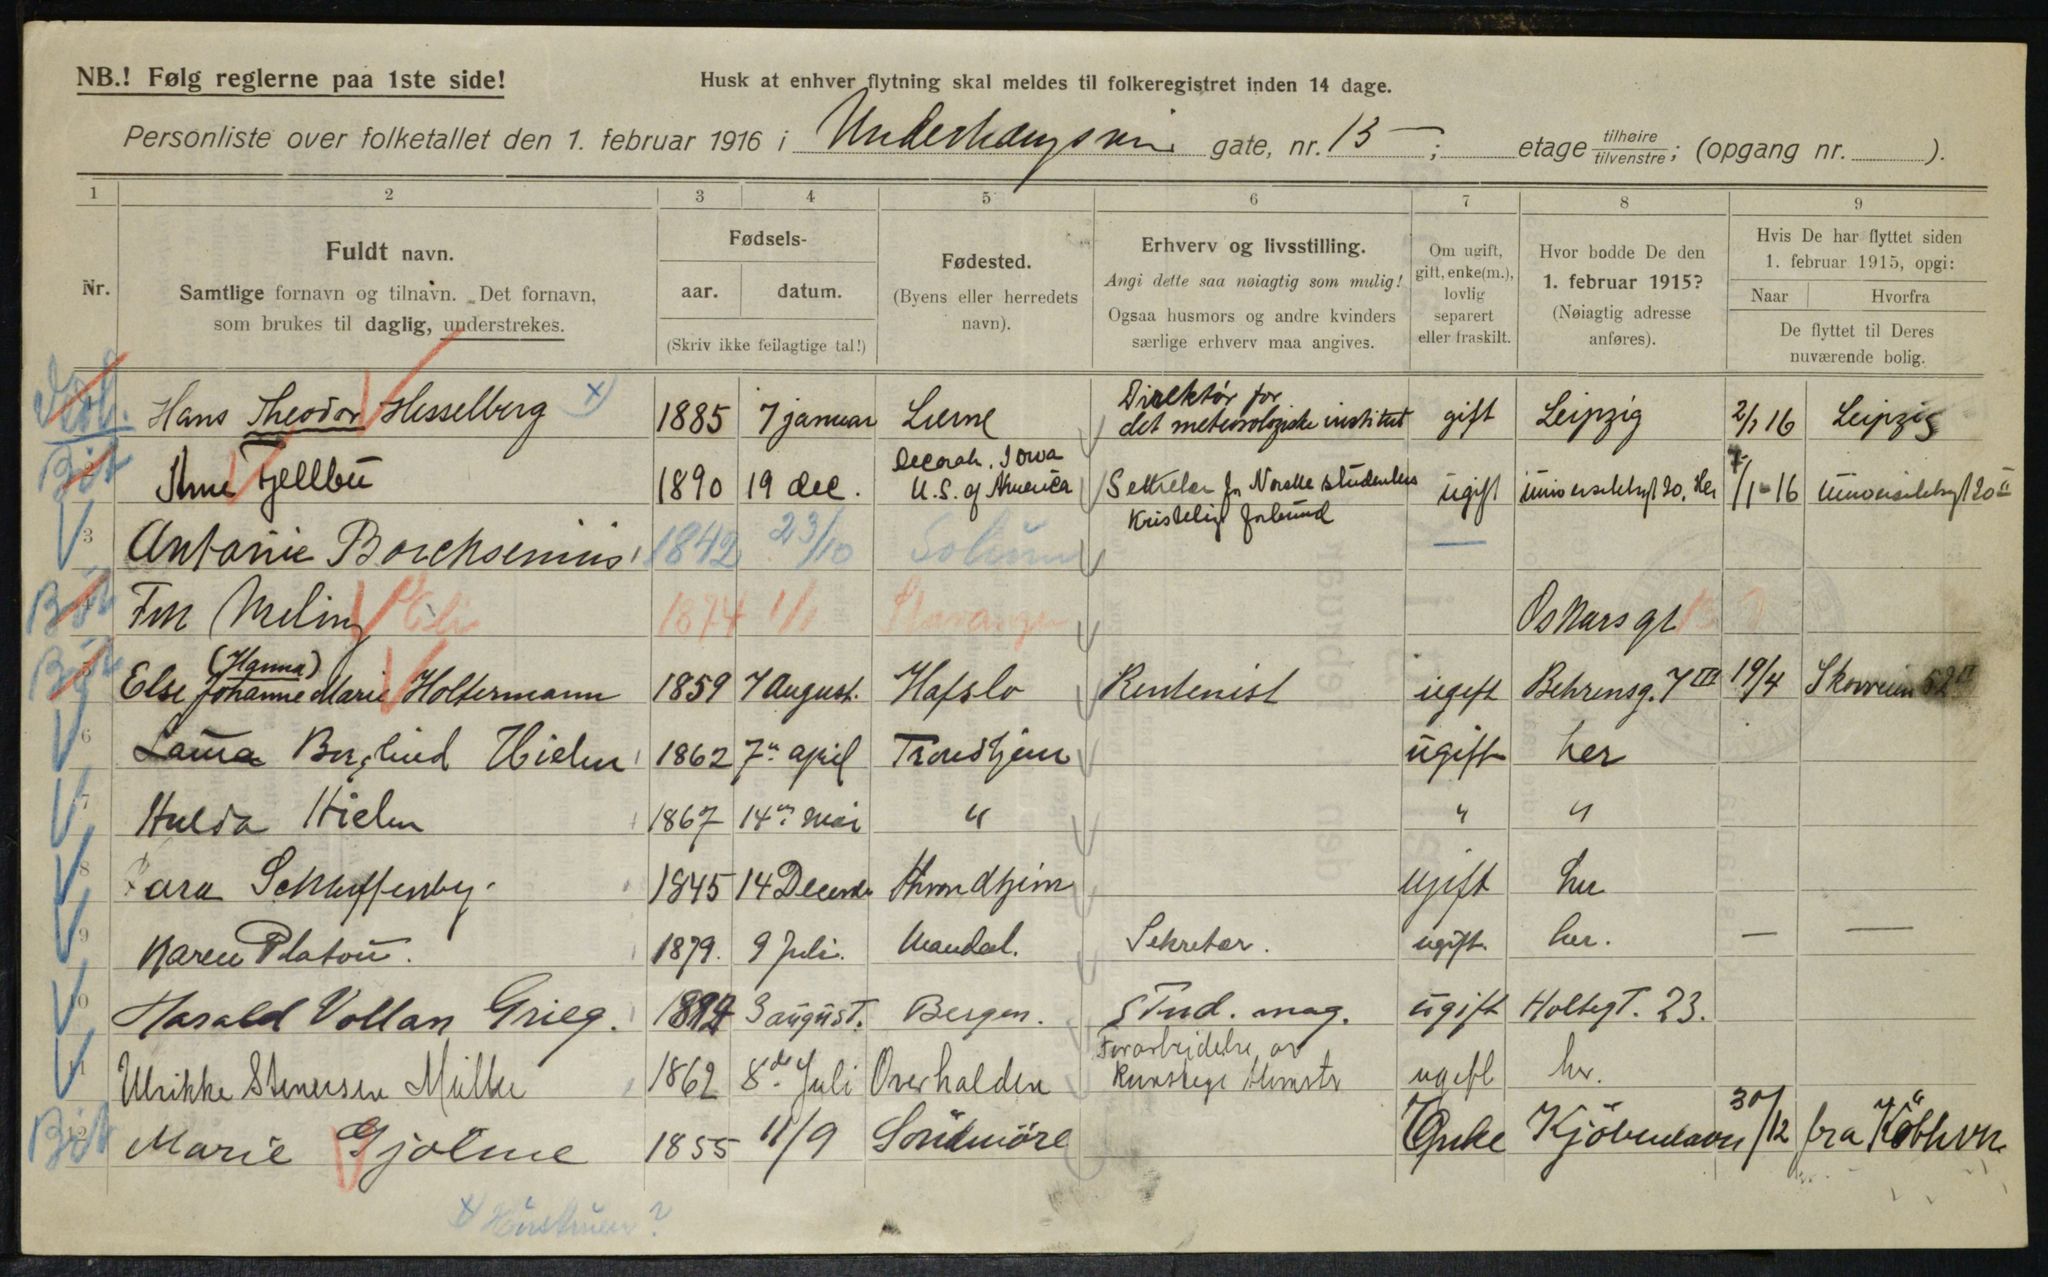 NB.! Følg reglerne paa 1ste side!
Husk at enhver flytning skal meldes til folkeregistret inden 14 dage.
Personliste over folketallet den 1. februar 1916 i gate, nr. 13 ; etage tilhøire tilvenstre; (opgang nr. ).
1 2 3 4 5 6 7 8 9
Nr.
Fuldt navn.
Samtlige fornavn og tilnavn. Det fornavn,
som brukes til daglig, understrekes.
Fødsels-
aar. datum.
(Skriv ikke feilagtige tal!)
Fødested.
(Byens eller herredets
navn).
Erhverv og livsstilling.
Angi dette saa nøiagtig som mulig!
Ogsaa husmors og andre kvinders
særlige erhverv maa angives.
Om ugift,
gift, enke(m.),
lovlig
separert
eller fraskilt.
Hvor bodde De den
1. februar 1915?
(Nøiagtig adresse
anføres).
Hvis De har flyttet siden
1. februar 1915, opgi:
Naar Hvorfra
De flyttet til Deres
nuværende bolig.
Hans Theodor Hesselberg x) 1885 7 januar Lierne Direktør for det meteorologiske institut gift Leipzig 2/1 16 Leipzig
2 Arne Fjellbu 1890 19 dec. Decorah, Iowa U.S. of America Sekretær for Norske studenters kristelige forbund ugift universitetsgt 20. her 7/1-16 universitetsgt 20 II
3 Antonie Borchsenius 1842 23/10 Solum —
4 Frk Meling 1874 1/1 Stavanger Oskarsgt
5 Else (Hanna) Johanne Marie Holtermann 1859 7 August. Hafslo Rentenist ugift Behrensg. 7 III 19/4 Skovveien 52 II
6 Laura Berglind Hielm 1862 7de april Trondhjem ugift her
7 Hulda Hielm 1867 14de mai " " "
8 Sara Scharffenberg. 1845 14 Decembr Throndhjem ugift her
9 Karen Platou. 1879. 9 Juli. Mandal. Sekretær. ugift. her. — —
10 Harald Vollan Grieg. 1894 3 august. Bergen. Stud. mag. ugift Holtegt. 23.
11 Ulrikke Stenersen Müller 1862 8de Juli Overhalden Forarbeidelse av ugift her.
12 Marie Gjölme 1855 11/9 Söndmöre Enke Kjöbenhavn 30/12 fra Köbhvn
x Hustruen?